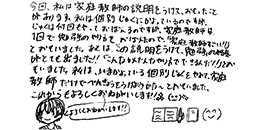 今回、私は家庭教師の説明をうけて、おもったこ
とがあります。私は個別じゅくにかよっているのですが、
じゅくは何回もやっておぼえるのですが、家庭教師は
1回で勉強のやり方をおぼえたので、「家庭教師すごい!!」
とおもいました。あとは、この説明をうけて、勉強のやる気
がとても出ました!!「こんなかんたんなやり方でできんだ!!」とおも
いました。私は、いまかよっている個別じゅくをやめて、家庭
教師だけでがんばろうかなとおもっていました。
これからもよろしくおねがいします!!
よろしくおねがいします!!